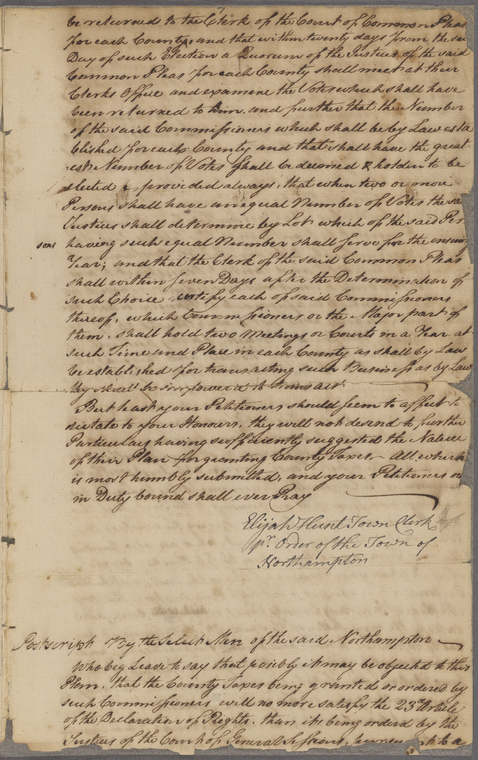 be returned to the Clerk of the Court of Common Pleas
for each County, and that within twenty days from the sd
Day of such Election a Quorum of the Justices of the said
Common Pleas for each County shall meet at their
Clerks Office and examine the Votes which shall have
been returned to him, and further that the Number
of the said Commissioners which shall be by Law esta
blished for each County and that shall have the great
est Number of Votes shall be deemed & holden to be
elected, provided always, that when two or more
Persons shall have an equal Number of Votes the sd
Justices shall determine by Lot which of the said Per
sons having such equal Number shall serve for the ensuing
Year; and that the Clerk of the said Common Pleas
shall within seven Days after the Determination of
such Choice certify each of said Commissioners
thereof, which Commissioners or the Major part of
them, shall hold two Meetings or Courts in a Year at
such Time and Place in each County as shall by Law
be established for transacting such Business as by Law
they shall be impowered to transact
But least your Petitioners should seem to affect to
dictate to your Honours, they will not descend to further
Particulars having sufficiently suggested the Nature
of their Plan for granting County Taxes - All which
is most humbly submitted, and your Petitioners as
in Duty bound shall ever Pray
Elijah Hunt Town Clerk
pr. Order of the Town of
Northampton
Postscript By the Select Men of the said Northampton
Who beg Leave to say that possibly it may be objected to this
Plan, that the County Taxes being granted or ordered by
such Commissioners will no more satisfy the 23d Article
of the Declaration of Rights, than its being ordered by the
Justices of the Court of General Sessions, to a